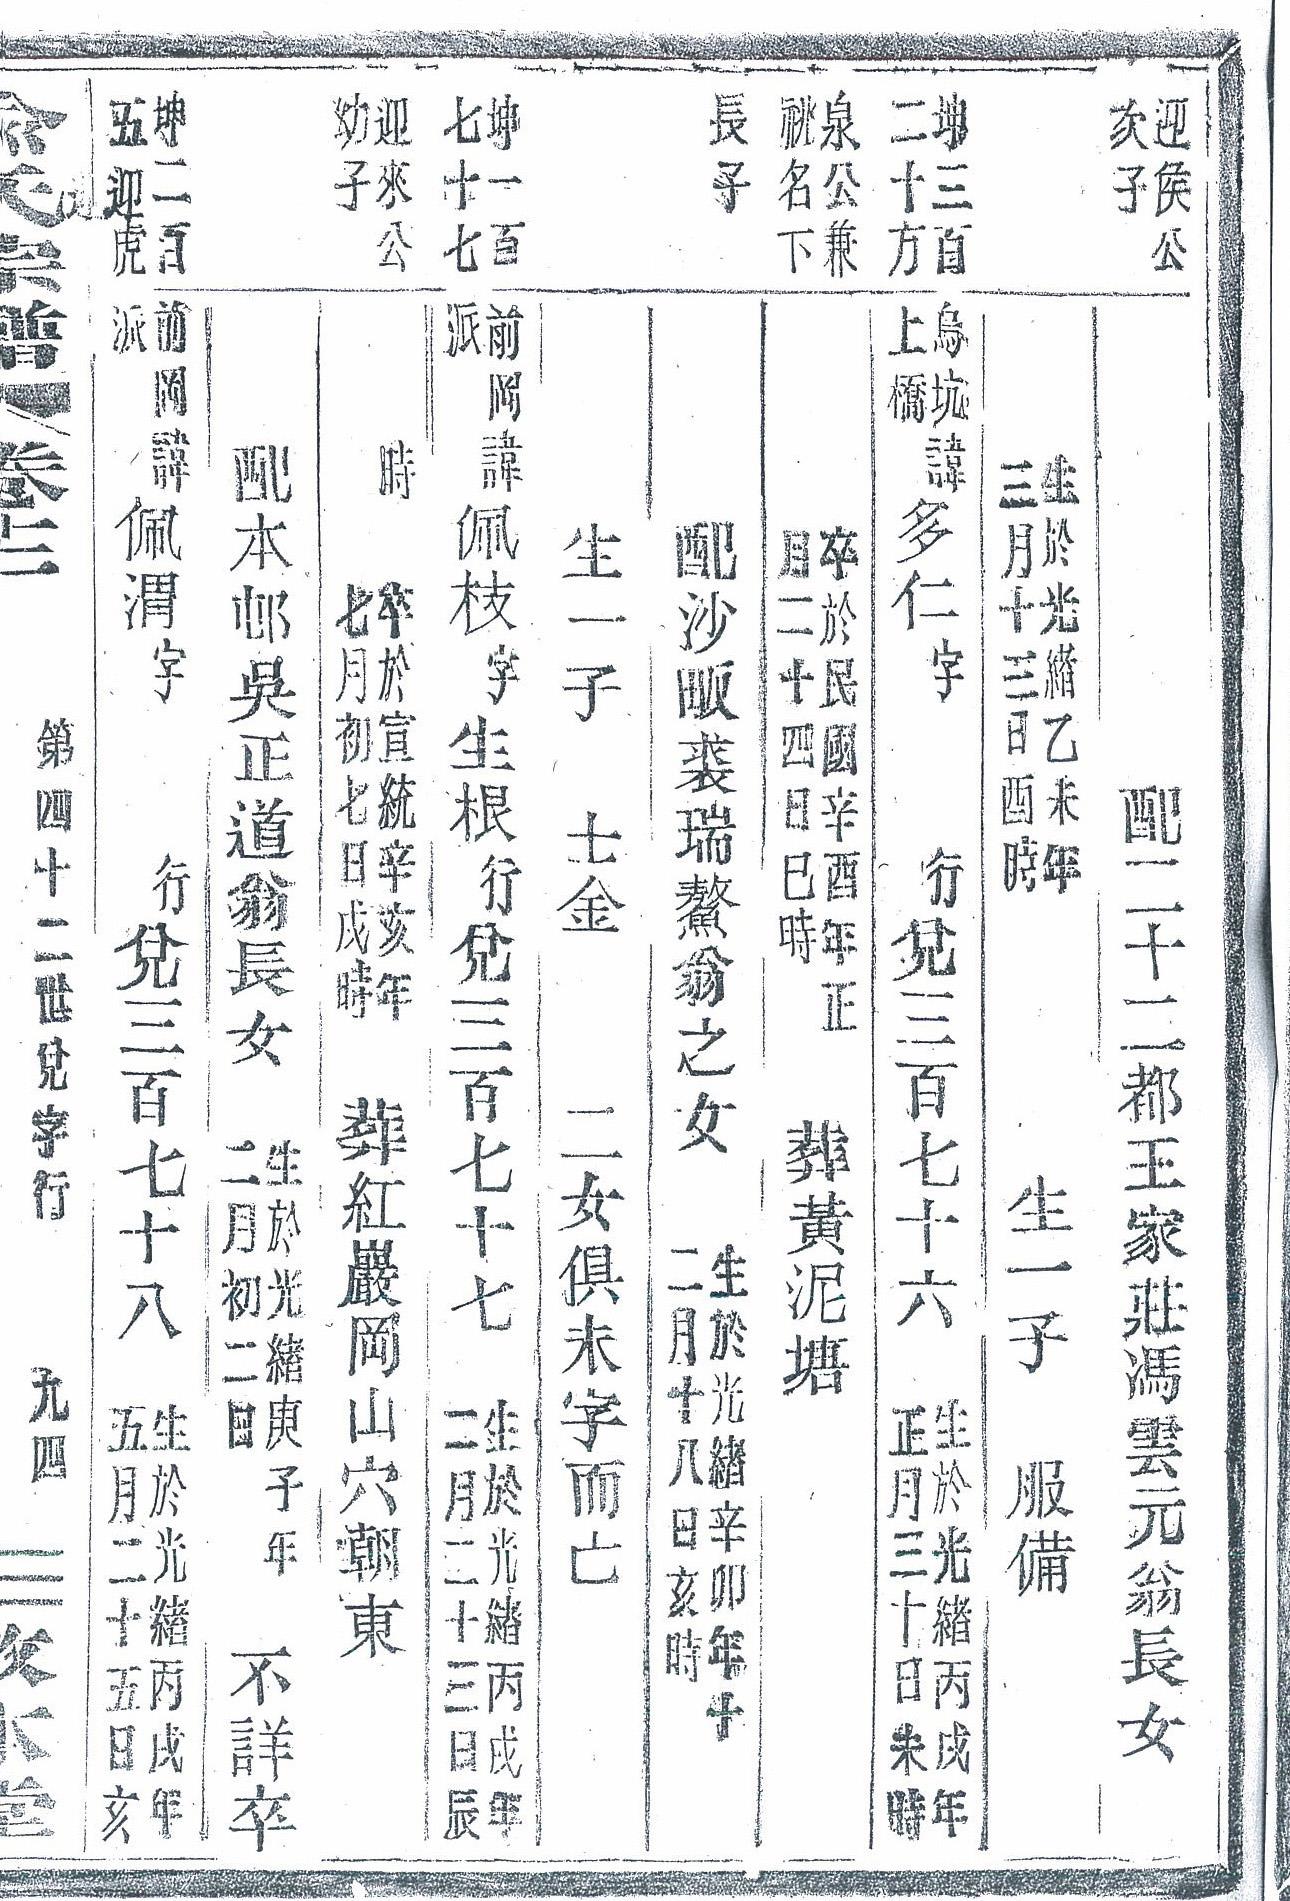 迎侯公
次子
配二十二都王家莊馮雲元翁長女
生於光緒乙未年
三月十三日酉時
生一子 服備
坤三百
二十方
烏坑
上橋
諱多仁字 行兌三百七十六
生於光緒丙戌年
正月三十日未時
泉公兼
祧名下
卒於民國辛酉年正
月二十四日巳時
葬黃泥塘
長子
配沙畈裘瑞鰲翁之女
生於光緒辛卯年十
二月十八日亥時
生一子 士金 二女俱未字而亡
坤一百
七十七
前岡
派
諱佩枝字生根行兌三百七十七
生於光緒丙戌年
二月二十三日辰
迎來公
幼子
時
卒於宣統辛亥年
七月初七日戌時
葬紅巖岡山穴朝東
配本邨吳正道翁長女
生於光緒庚子年
二月初二日
不詳卒
坤二百
五迎虎
前岡
派
諱佩渭字 行兌三百七十八
生於光緒丙戌年
五月二十五日亥
宗譜 卷十二
第四十二世兌字行 九四